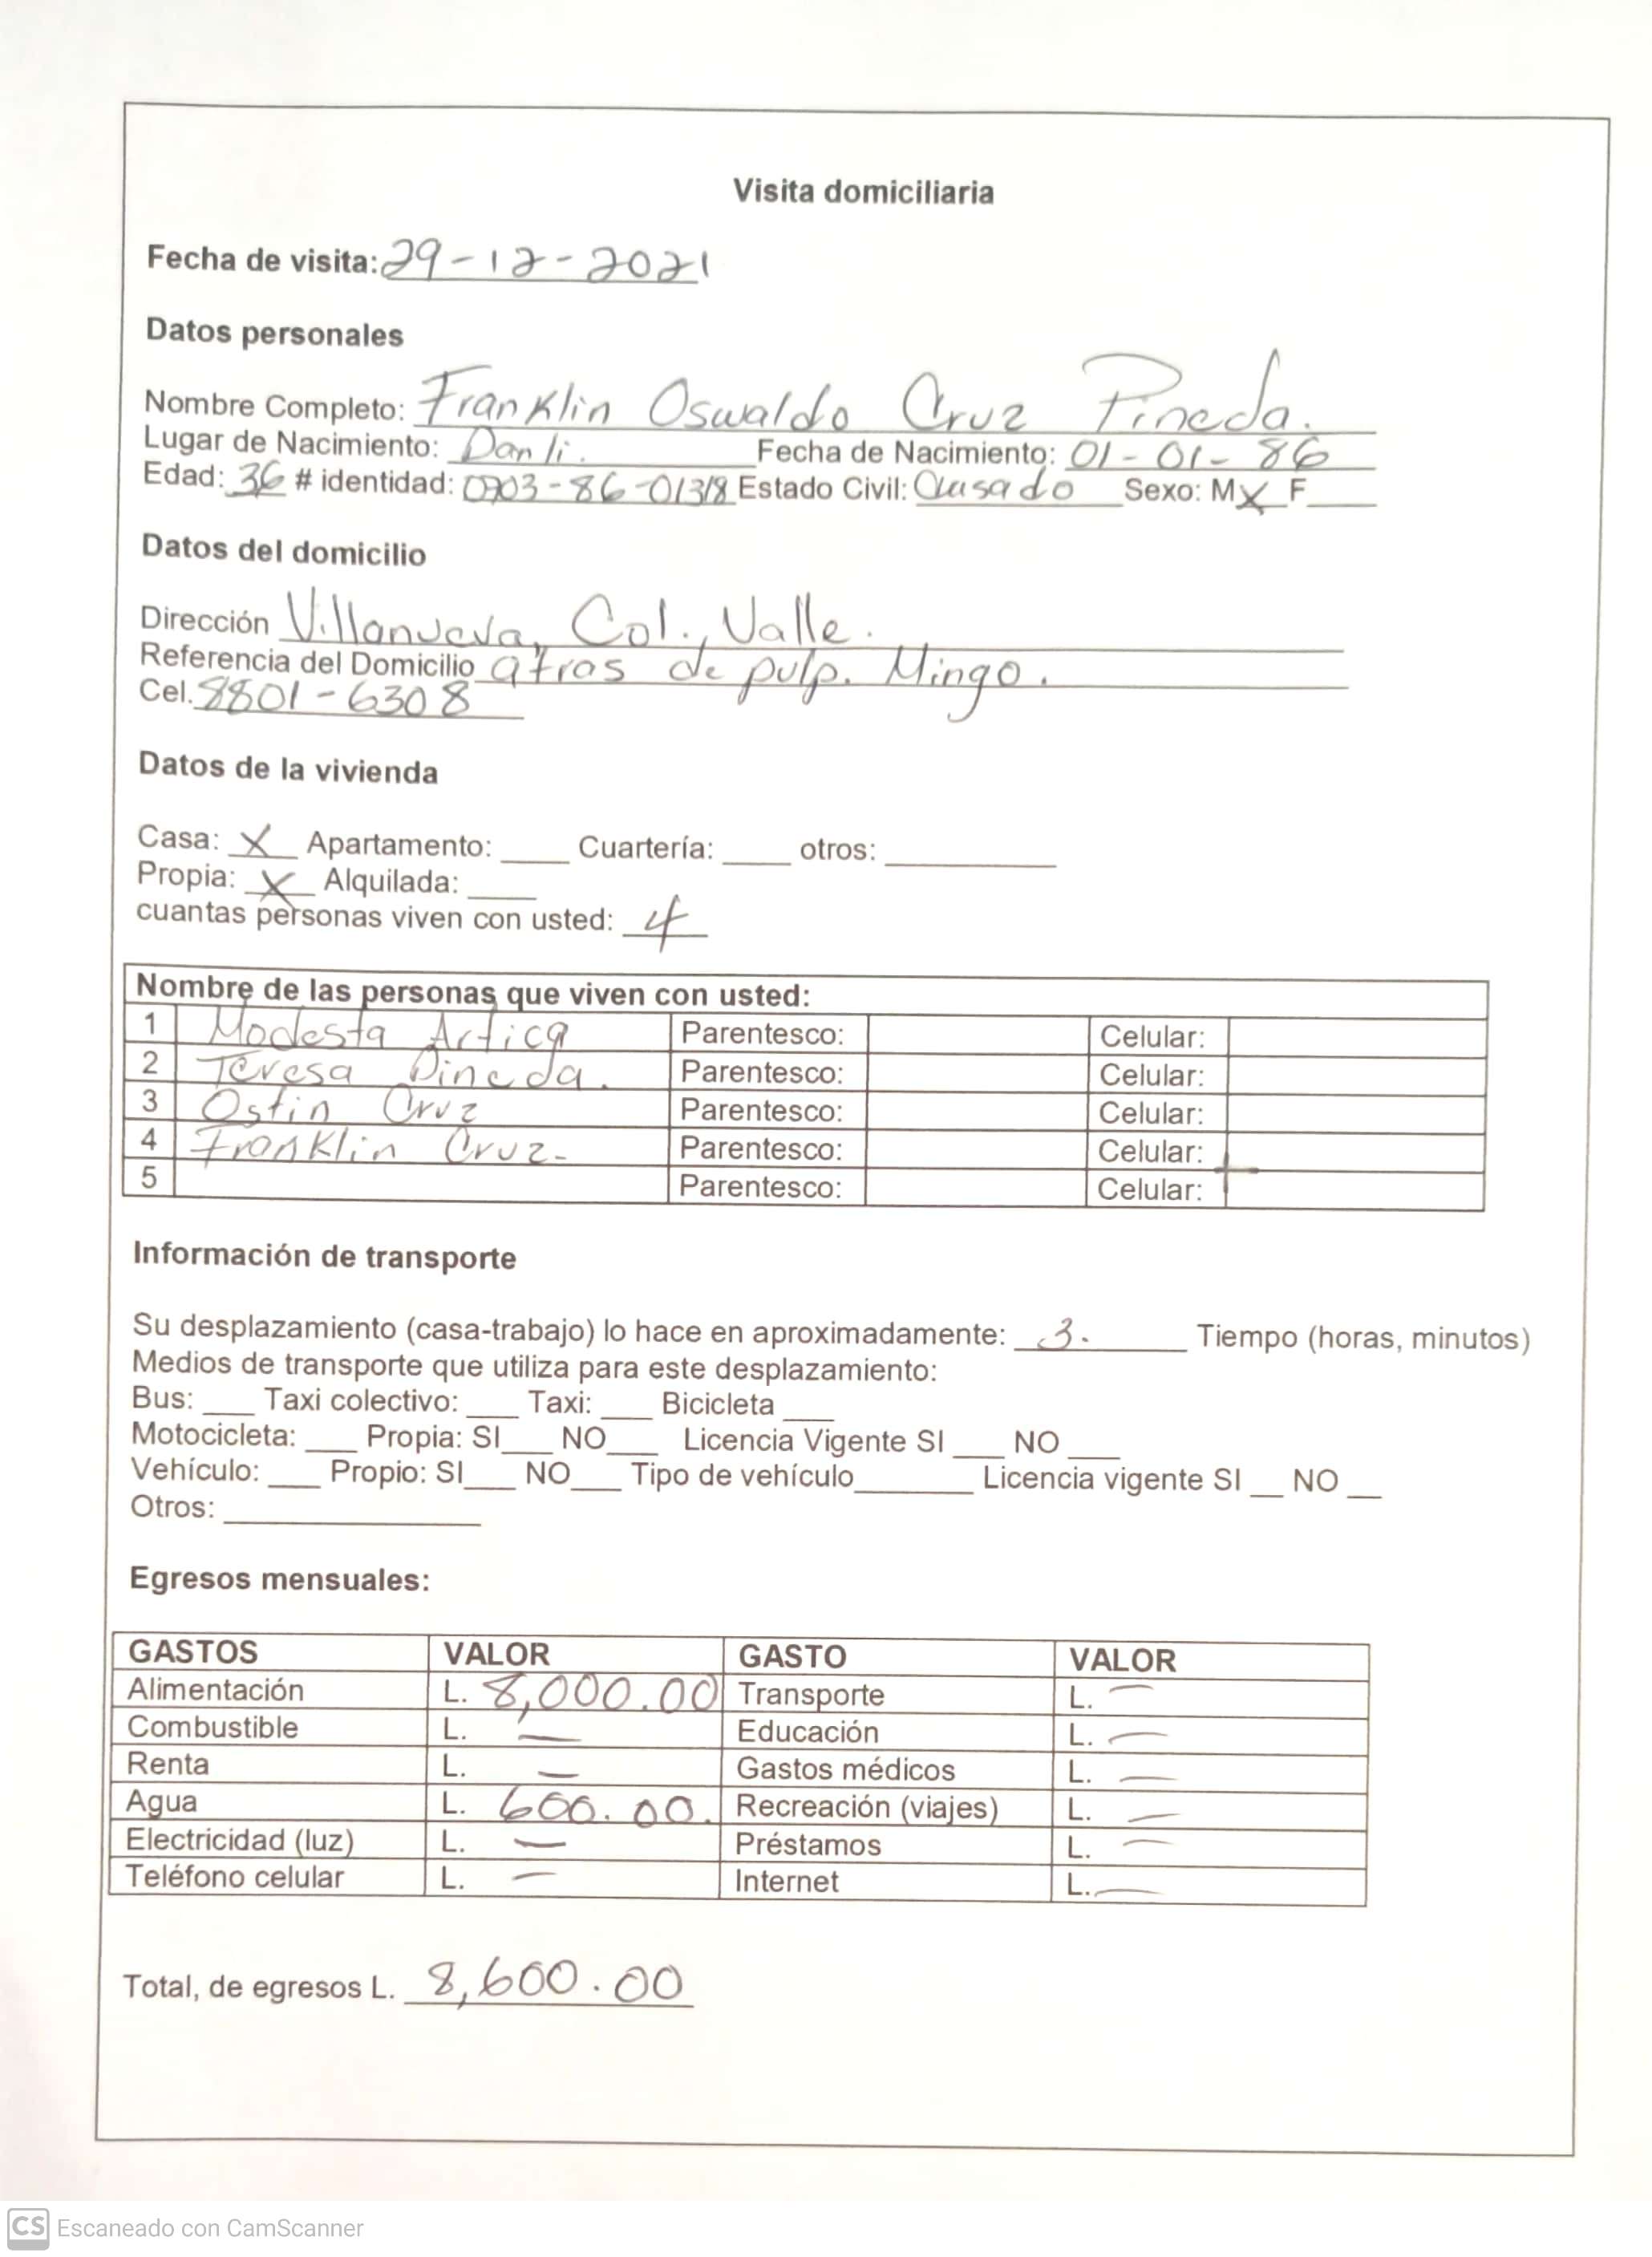 Visita domiciliaria
Fecha de visita: 29-12-2021
Datos personales
Nombre Completo: Franklin Oswaldo Cruz Pineda.
Lugar de Nacimiento: Danli. Fecha de Nacimiento: 01-01-86
Edad: 36 # identidad: 0703-86-01318 Estado Civil: Casado Sexo: M X F____
Datos del domicilio
Dirección Villanueva, Col., Valle.
Referencia del Domicilio atras de pulp. Mingo.
Cel. 8801-6308
Datos de la vivienda
Casa: X Apartamento: ____ Cuartería: ____ otros: __________
Propia: X Alquilada: ____
cuantas personas viven con usted: 4
Nombre de las personas que viven con usted:
1 Modesta Artica Parentesco: Celular:
2 Teresa Pineda. Parentesco: Celular:
3 Ostin Cruz Parentesco: Celular:
4 Franklin Cruz- Parentesco: Celular:
5 Parentesco: Celular:
Información de transporte
Su desplazamiento (casa-trabajo) lo hace en aproximadamente: 3. Tiempo (horas, minutos)
Medios de transporte que utiliza para este desplazamiento:
Bus: ___ Taxi colectivo: ___ Taxi: ___ Bicicleta ___
Motocicleta: ___ Propia: SI___ NO___ Licencia Vigente SI ___ NO ___
Vehículo: ___ Propio: SI___ NO___ Tipo de vehículo_______ Licencia vigente SI __ NO __
Otros: _______________
Egresos mensuales:
GASTOS VALOR GASTO VALOR
Alimentación L. 8,000.00 Transporte L. —
Combustible L. — Educación L. —
Renta L. — Gastos médicos L. —
Agua L. 600.00. Recreación (viajes) L. —
Electricidad (luz) L. — Préstamos L. —
Teléfono celular L. — Internet L. —
Total, de egresos L. 8,600.00
CS Escaneado con CamScanner